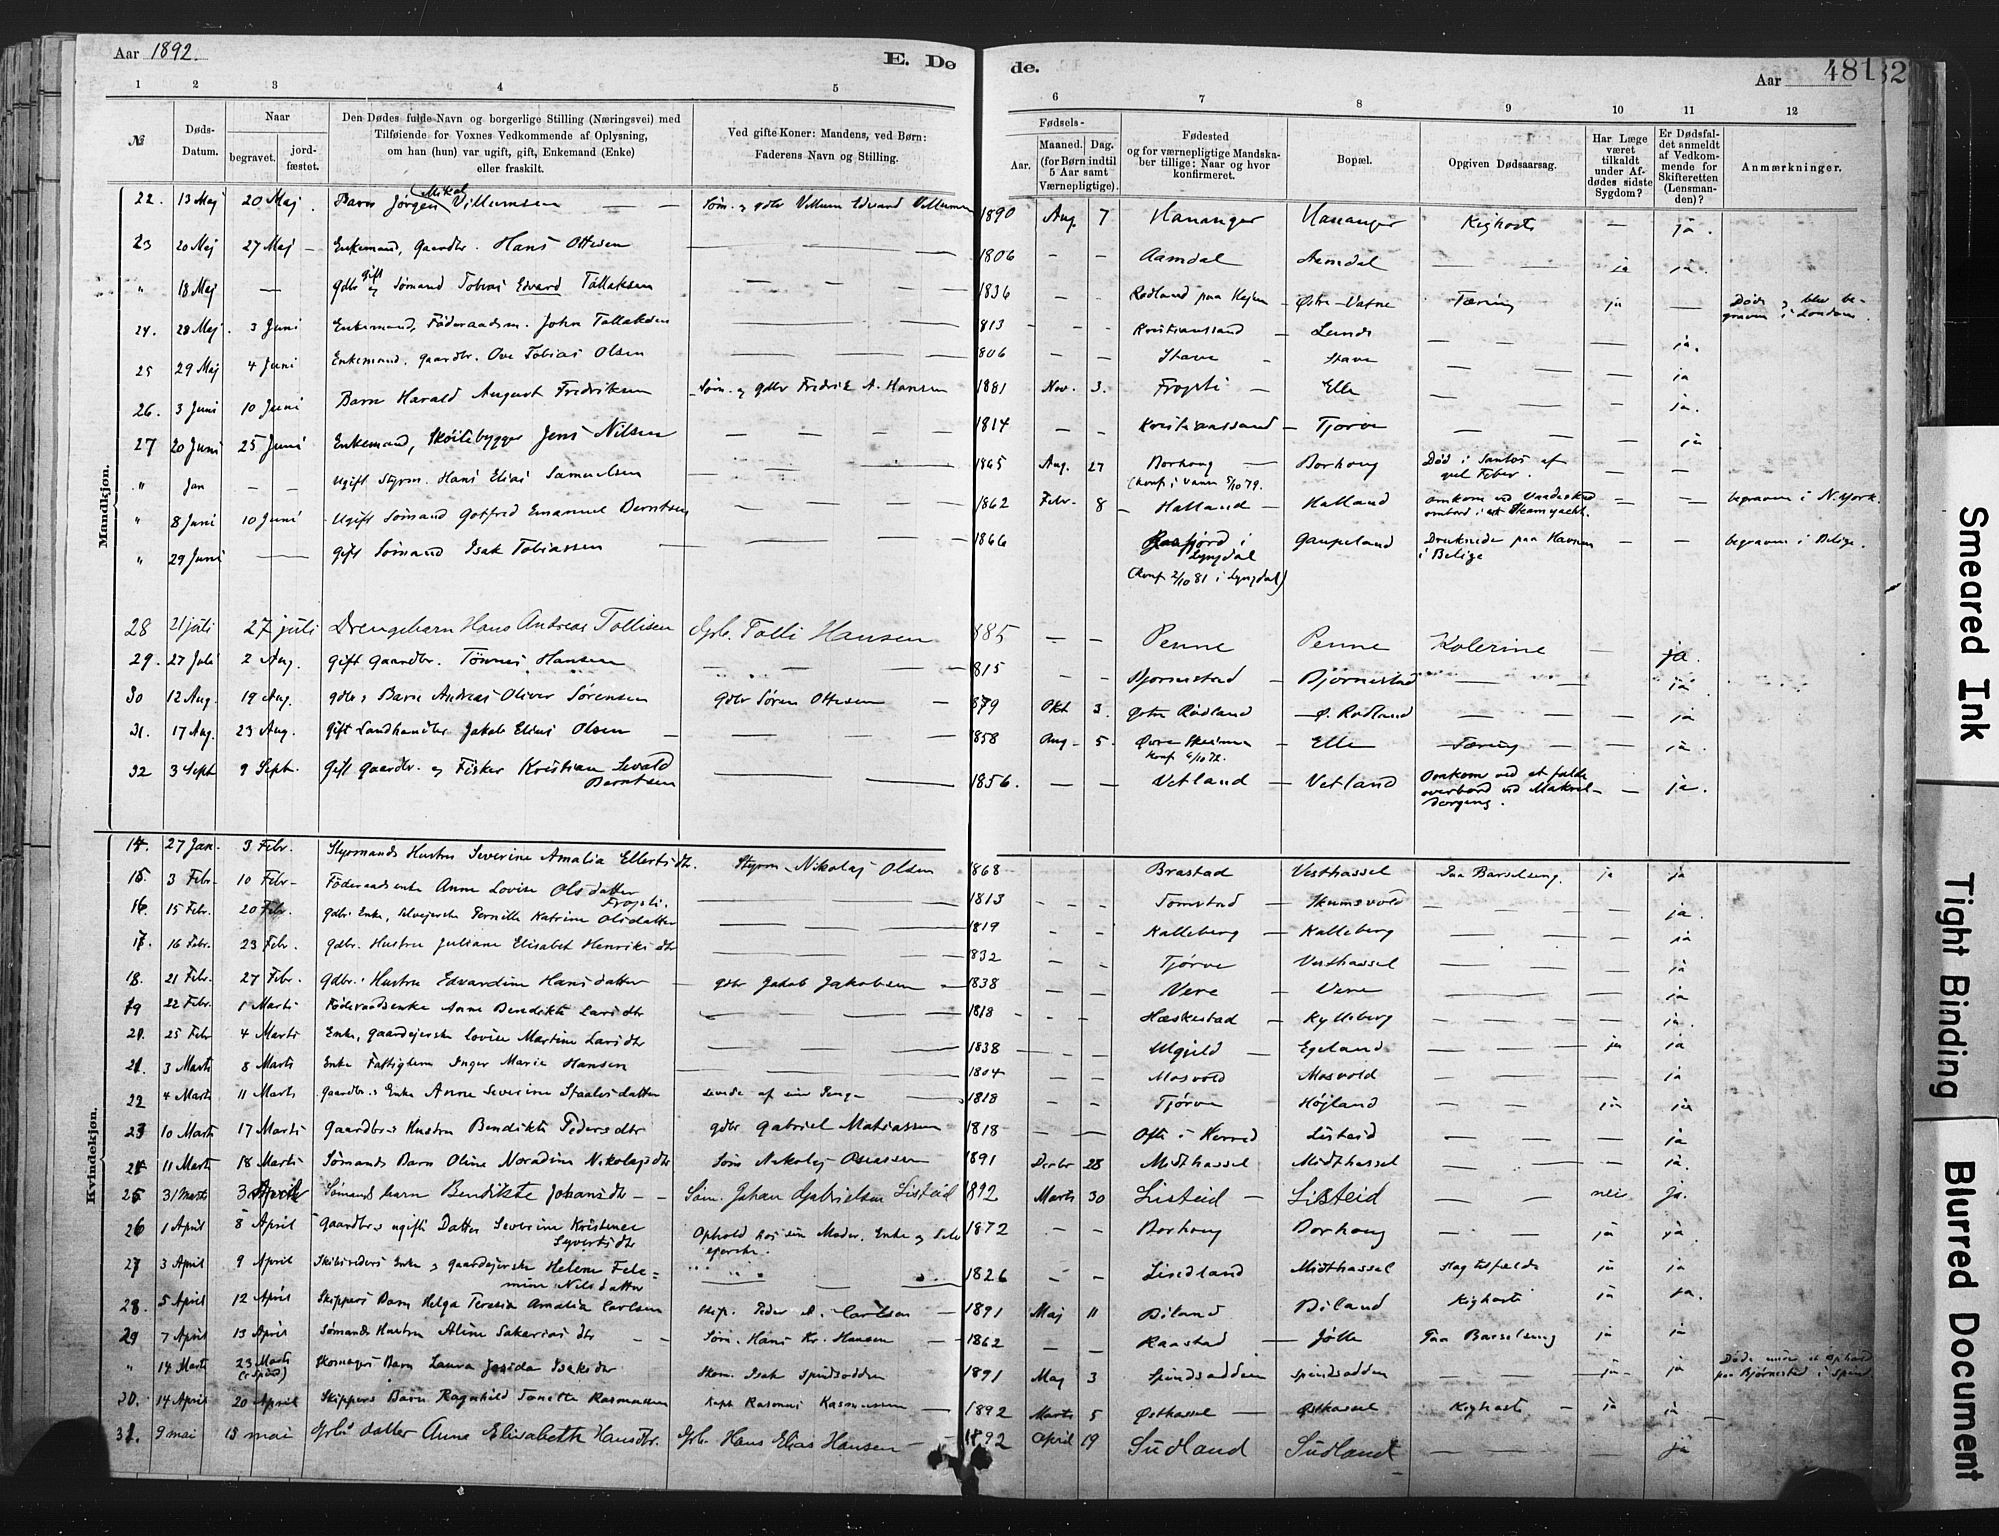 Aar 1892.
E. Dø
de.
Aar
481
32
1 2 3 4 5
6 7 8 9 10 11 12
№
Døds-Datum.
Naar
begravet.
jordfæstet.
Den Dødes fulde Navn og borgerlige Stilling (Næringsvei) med
Tilføiende for Voxnes Vedkommende af Oplysning,
om han (hun) var ugift, gift, Enkemand (Enke)
eller fraskilt.
Ved gifte Koner: Mandens, ved Børn:
Faderens Navn og Stilling.
Fødsels-
Aar.
Maaned. Dag.
(for Børn indtil
5 Aar samt
Værnepligtige).
Fødested
og for værnepligtige Mandska-
ber tillige: Naar og hvor
konfirmeret.
Bopæl.
Opgiven Dødsaarsag.
Har Læge
været
tilkaldt
under Af-
dødes sidste
Sygdom?
Er Dødsfal-
det anmeldt
af Vedkom-
mende for
Skifteretten
(Lensman-
den)?
Anmærkninger.
Mandkjøn.
22. 13 Maj 20 Maj. Barn Jørgen Mikal Villumsen — — Søm. og gdbr Villum Edvard Villumsen 1890 Aug. 7 Hananger Hananger Kighoste — ja.
23 20 Maj 27 Maj — Enkemand, Gaardbr. Hans Ottesen 1806 — — Aamdal Aamdal — — ja ja.
" 18 Maj — Gdbr gift og Sømand Tobias Edvard Tollaksen 1836 - - Rødland paa Østre-Vatne Tæring ja — Døde og blev be-
graven i London.
24. 28 Maj. 3 Juni Enkemand, Føderaadsm. John Tollaksen 1813 Kristianssand — Lunde — — ja.
25 29 Maj 4 Juni Enkemand, Gaardbr. Ove Tobias Olsen 1806 — — Stave - Stave — — ja
26. 3 Juni 10 Juni Barn Harald August Fredriksen Søm. og gdbr Fredrik A. Hansen 1881 Nov. 3. — Elle — — ja.
27 20 Juni 25 Juni Enkemand, Skøitebygger Jens Nilsen 1814 — — Kristianssand — Tjørve — — ja
" Jan — — Ugift Styrm. Hans Elias Samuelsen 1865 Aug. 27 Borhoug — Borhoug Død i Santos af
gul Feber. — —
(Konf. i Vanse 5/10 79.
" 8 Juni 10 Juni Ugift Sømand Gotfred Emanuel Berntsen 1862 Febr. 8 Halland — Halland omkom ved — — begraven i N. York.
" 29 Juni — Gift Sømand Isak Tobiassen 1866 i
Lyngdal
(Konf 2/10 81 i Lyngdal) Gaupeland Druknede paa Havnen
i Belize — — begraven i Belize.
28 21 juli 27 juli Drengebarn Hans Andreas Tollisen Gbr. Tolli Hansen 1885 — — Penne Penne Kolerine — ja.
29. 27 Juli 2 Aug. Gift Gaardbr. Tønnes Hansen 1815 — — Bjørnestad — Bjørnestad — — ja
30 12 Aug. 19 Aug. gdbr's Barn Andreas Oliver Sørensen gdbr Søren Ottesen — 1879 Okt 3. Østre Rødland — Ø. Rødland — — ja
31. 17 Aug. 23 Aug. Gift Landhandler Jakob Elias Olsen — 1858 Aug. 5. Øvre
Konf 6/10 72. — Elle Tæring — ja.
32 3 Sept 9 Sept. Gift Gaardbr. og Fisker Kristian Sevald
Berntsen 1856. — — Vetland — Vetland Omkom ved at falde
overbord ved Makrel-
dorgning. — ja.
Kvindekjøn.
14. 27 Jan. 3 Febr. Styrmands Hustru Severine Amalia Ellertsdtr. Styrm. Nikolaj Olsen 1868 Brastad Vesthassel Paa Barselseng. ja ja
15. 3 Febr. 10 Febr. Føderaadsenke Anne Lovise Olsdatter 1813 - - - Tomstad — Skumsvold — — ja.
16. 15 Febr. 20 Febr. gdbr. Enke, Selvejerske Pernille Katrine Olsdatter 1819 - - Kalleberg — Kalleberg — — ja
17. 16 Febr. 23 Febr. gdbr. Hustru Juliane Elisabet Henriksdtr 1832 - - Tjørve Vesthassel — — ja
18. 21 Febr. 27 Febr. Gdbr.s Hustru Edvardine Hansdatter — gdbr Jakob Jakobsen — 1838 — - Vere — Vere — — ja
19 22 Febr. 1 Marts Føderaadsenke Anne Bendikte Larsdtr 1818 - - Hæskestad — Kylleberg — — ja.
20. 25 Febr 4 Marts Enke, Gaardejerske Lovise Martine Larsdtr 1838 — - - Ulgjeld — Egeland — — ja ja
21. 3 Marts 8 Marts Enke Fattiglem Inger Marie Hansen 1804 — - Mosvold Mosvold — — ja
22 4 Marts 11 Marts Gaardbr.s Enke Anne Severine Staalesdatter levede af sine Penge 1818 - - Tjørve — Højland — — ja ja
23 10 Marts 17 Marts Gaardbrs Hustru Bendikte Pedersdtr gdbr Gabriel Matiassen 1818 — — Ofte i Herred Listeid — — ja
24 11 Marts 18 Marts Sømands Barn Oline Noradine Nikolajsdtr Søm Nikolaj 1891 Decbr 28 Midthassel — Midthassel — — ja.
25 31 Marts 3 April Sømands barn Bendikte Johansdtr — - Søm. Johan Gabrielsen Listeid 1892 Marts 30 Listeid — Listeid — — nei ja.
26 1 April 8 April Gaardbrs ugifte Datter Severine Kristense
Syvertsdtr Ophold hos sin Moder, Enke og Selv-
ejerske. 1872 - - Borhoug Borhoug — — ja ja.
27 3 April 9 April Enke og Gaardejerske Helene Fele=
mine Nilsdatter 1826 - - Lindland Midthassel Slagtilfælde ja ja
28. 5 April 12 April Skippers Barn Helga Teresia Amalia Carlsen Skip. Peder A. Carlsen — 1891 Maj 11 Biland — Biland Kighoste ja ja.
29 7 April 13 April Sømands Hustru Aline Sakariasdtr - - Søm. Hans Kr. Hansen — 1862 — — Raastad — Jølle Paa Barselseng ja ja
" 14 Marts 23 Marts
(i Spind) Skomagers Barn Laura Josida Isaksdtr Skom. Isak Spindsodden 1891 Maj 3 Spindsodden Spindsodden — — ja ja Døde under et Ophold
paa Bjørnestad i Spind
30. 14 April 20 April Skippers Barn Ragnhild Tonette Rasmussen Kapt. Rasmus Rasmussen — 1892 Marts 5 Østhassel — Østhassel Kighoste ja ja
31. 9 mai 15 mai Gbrs datter Anna Elisabeth Hansdtr. Gbr. Hans Elias Hansen — 1892 April 19 Sudland Sudland — — ja
Smeared Ink
Tight Binding
Blurred Document